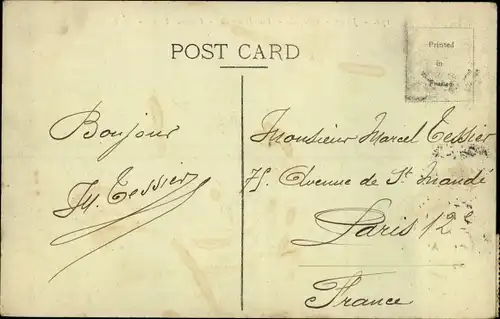 POST CARD
Printed
in
Bonjour
M. Tessier
Monsieur Marcel Tessier
75. Avenue de St Mandé
Paris 12e
France